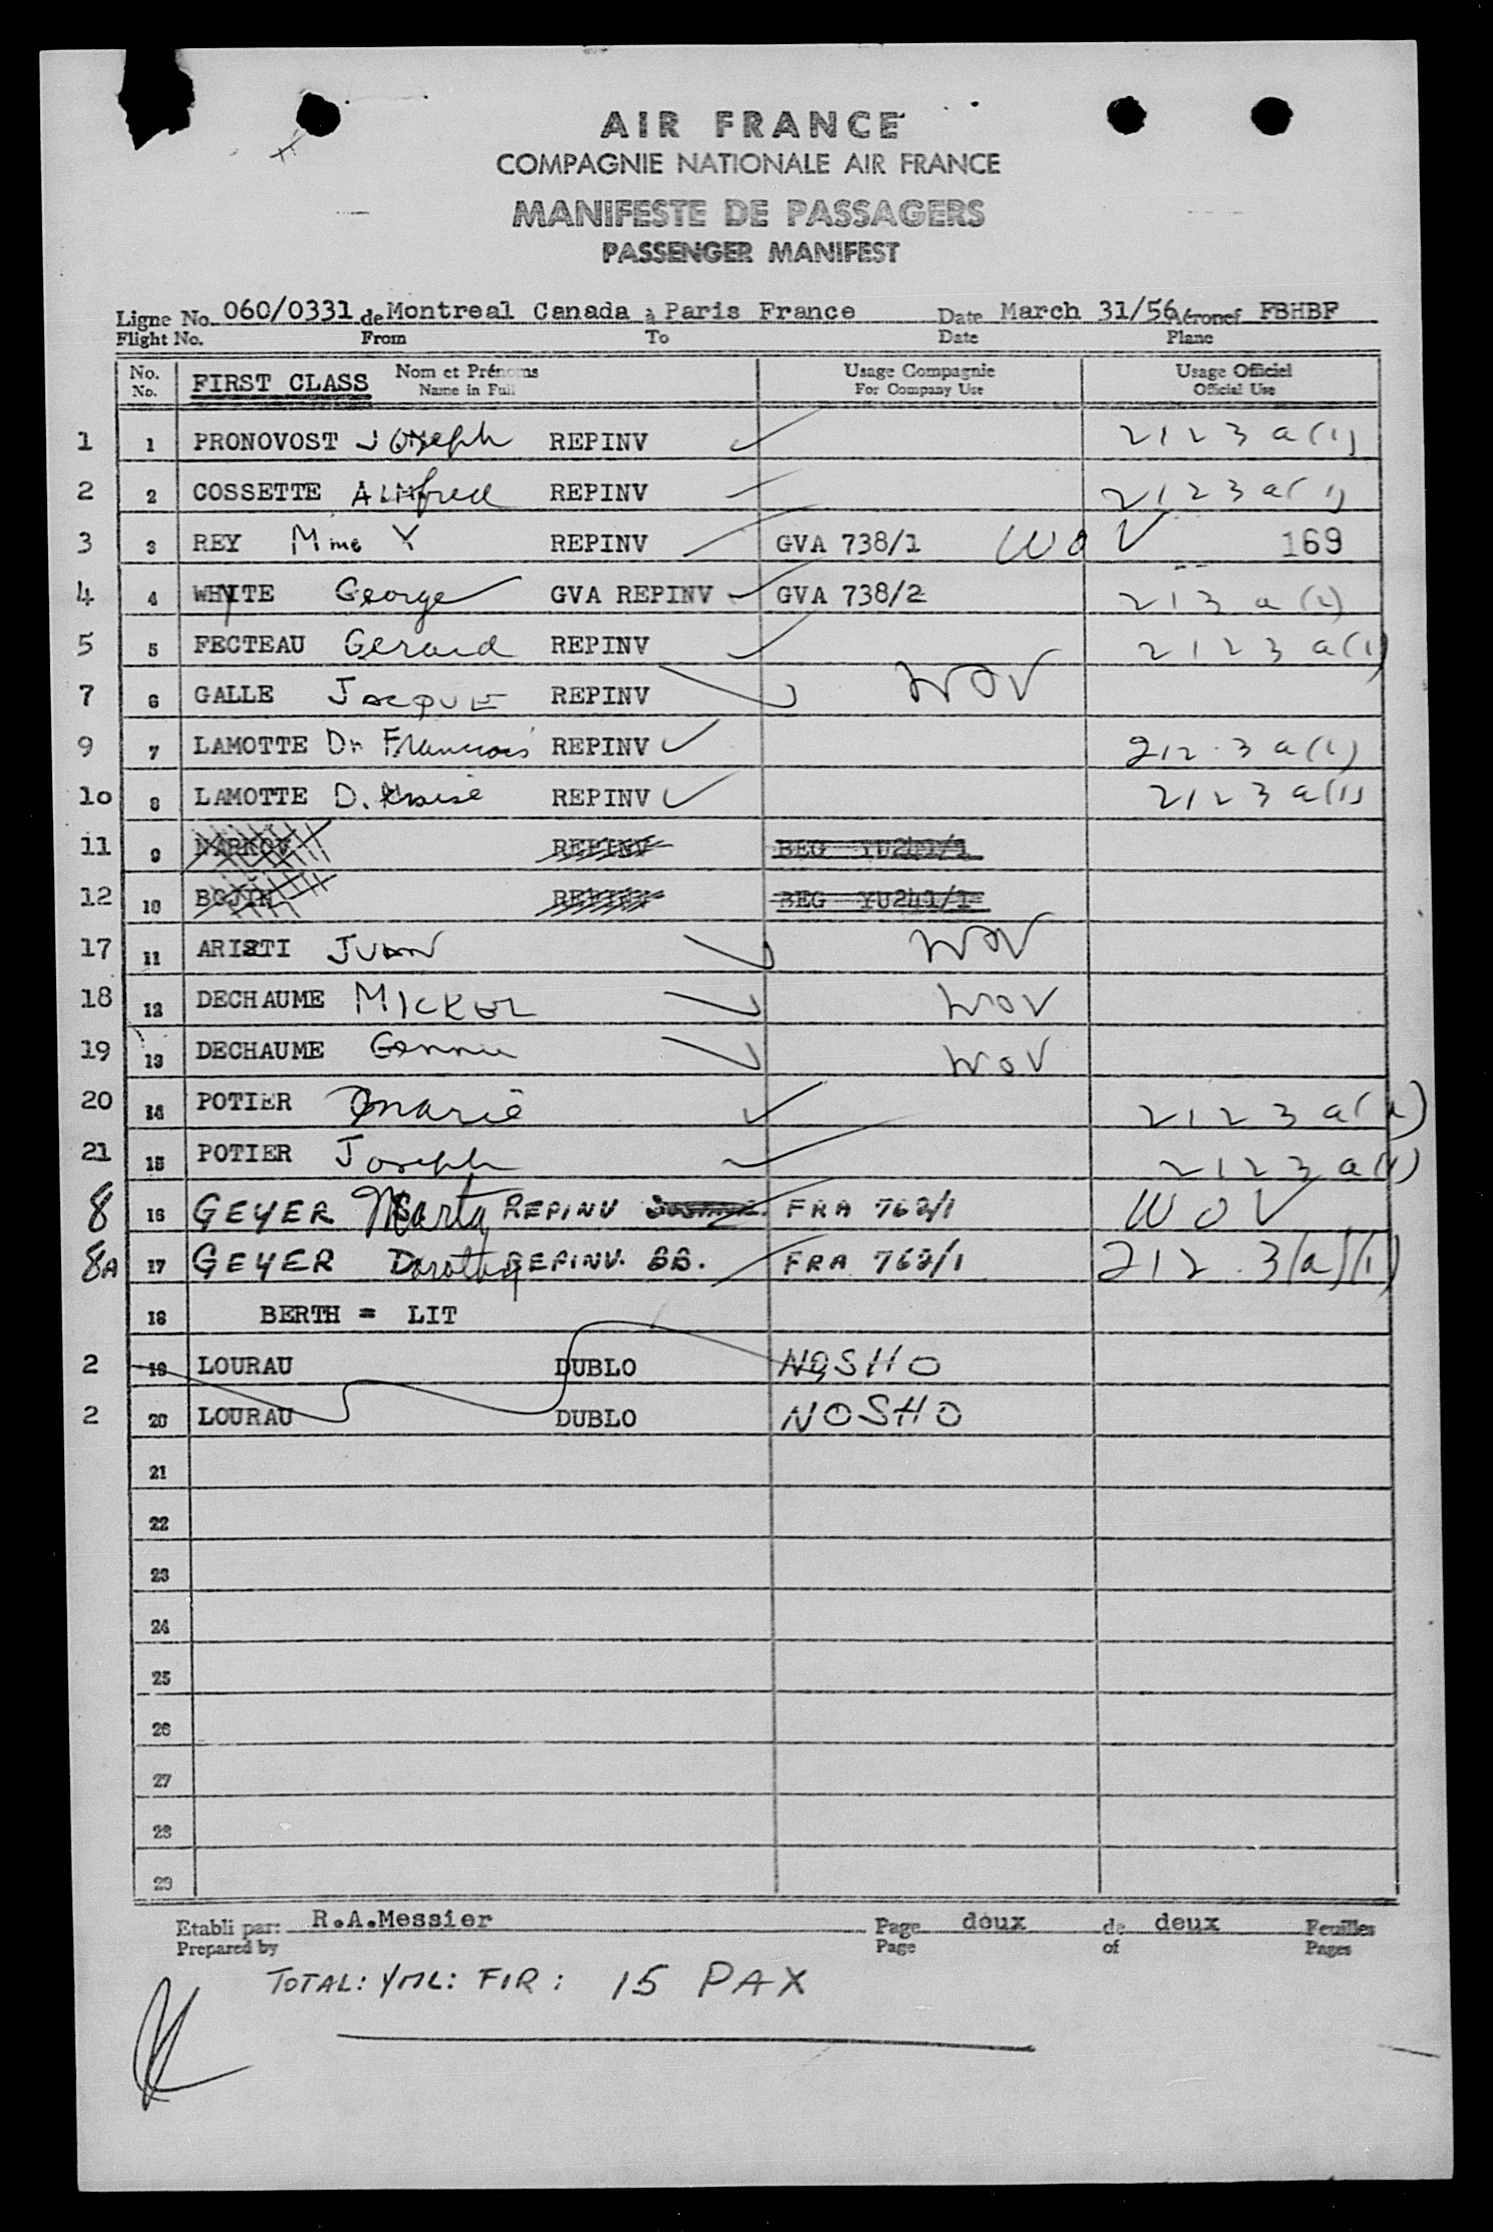 AIR FRANCE
COMPAGNIE NATIONALE AIR FRANCE
MANIFESTE DE PASSAGERS
PASSENGER MANIFEST
Ligne No. 060/0331 de Montreal Canada à Paris France Date March 31/56 Aéronef FBHBF
Flight No. From To Date Plane
No. FIRST CLASS Nom et Prénoms Usage Compagnie Usage Officiel
No. Name in Full For Company Use Official Use
1 1 PRONOVOST Joseph REPINV 2123a(1)
2 2 COSSETTE Alfred REPINV 2123a(1)
3 3 REY Mme Y REPINV GVA 738/1 WOV 169
4 4 WHYTE George GVA REPINV GVA 738/2 213a(2)
5 5 FECTEAU Gerard REPINV 2123a(1)
7 6 GALLE JACQUE REPINV WOV
9 7 LAMOTTE Dr Francois REPINV 212.3a(1)
10 8 LAMOTTE D. REPINV 2123a(1)
11 9 MARKOV REPINV BEG YU241/1
12 10 BOJIN REPINV BEG YU241/1
17 11 ARISTI JUAN WOV
18 12 DECHAUME MICKEL WOV
19 13 DECHAUME WOV
20 14 POTIER Marie 2123a(1)
21 15 POTIER Joseph 2123a(1)
8 16 GEYER Marta REPINV FRA 762/1 WOV
8A 17 GEYER Dorothy REPINV. BB. FRA 762/1 212.3(a)(1)
18 BERTH = LIT
2 19 LOURAU DUBLO NOSHO
2 20 LOURAU DUBLO NOSHO
21
22
23
24
25
26
27
28
29
Etabli par: R.A.Messier Page doux de deux Feuilles
Prepared by Page of Pages
TOTAL: YML: FIR: 15 PAX